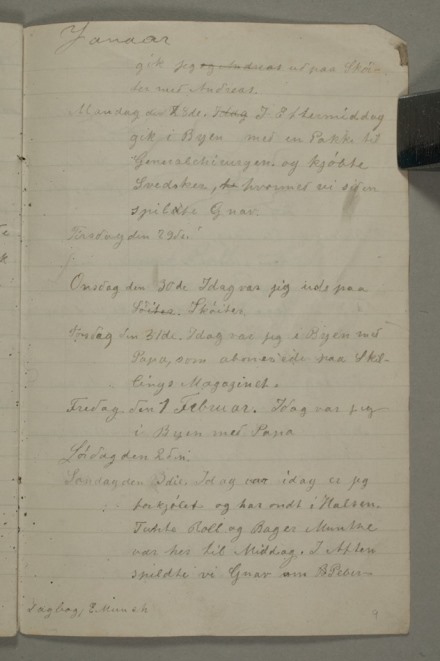 Januar
gik jeg og Andreas ud paa Skøi-
ter med Andreas.
Mandag den 28de. Idag I Eftermiddag
gik i Byen med en Pakk til
Generalchirurgen. og kjøbte
Svedsker, hvormed vi siden
spildte Gnav.
Tirsdag den 29de.
Onsdag den 30de Idag var jeg ude paa
Skøiter.
Torsdag den 31de. Idag var jeg i Byen med
Papa, som abonerede paa Skil-
lings Magazinet.
Fredag den 1 Februar. Idag var jeg
i Byen med Papa
Lørdag den 2den.
Søndag den 3die. Idag var idag er jeg
forkjølet og har ondt i Halsen.
Tante Boll og Bager Munthe
var her til Middag. I Aften
spildte vi Gnav om
Dagbog, E Munch
9